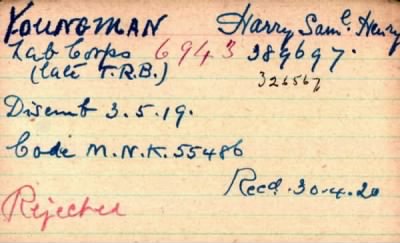 YOUNGMAN Harry Saml. Henry
Lab Corps 6943 389697.
(late T.R.B.) 326567
Disemb 3.5.19.
Code M.N.K. 55486
Recd. 30.4.20
Rejected